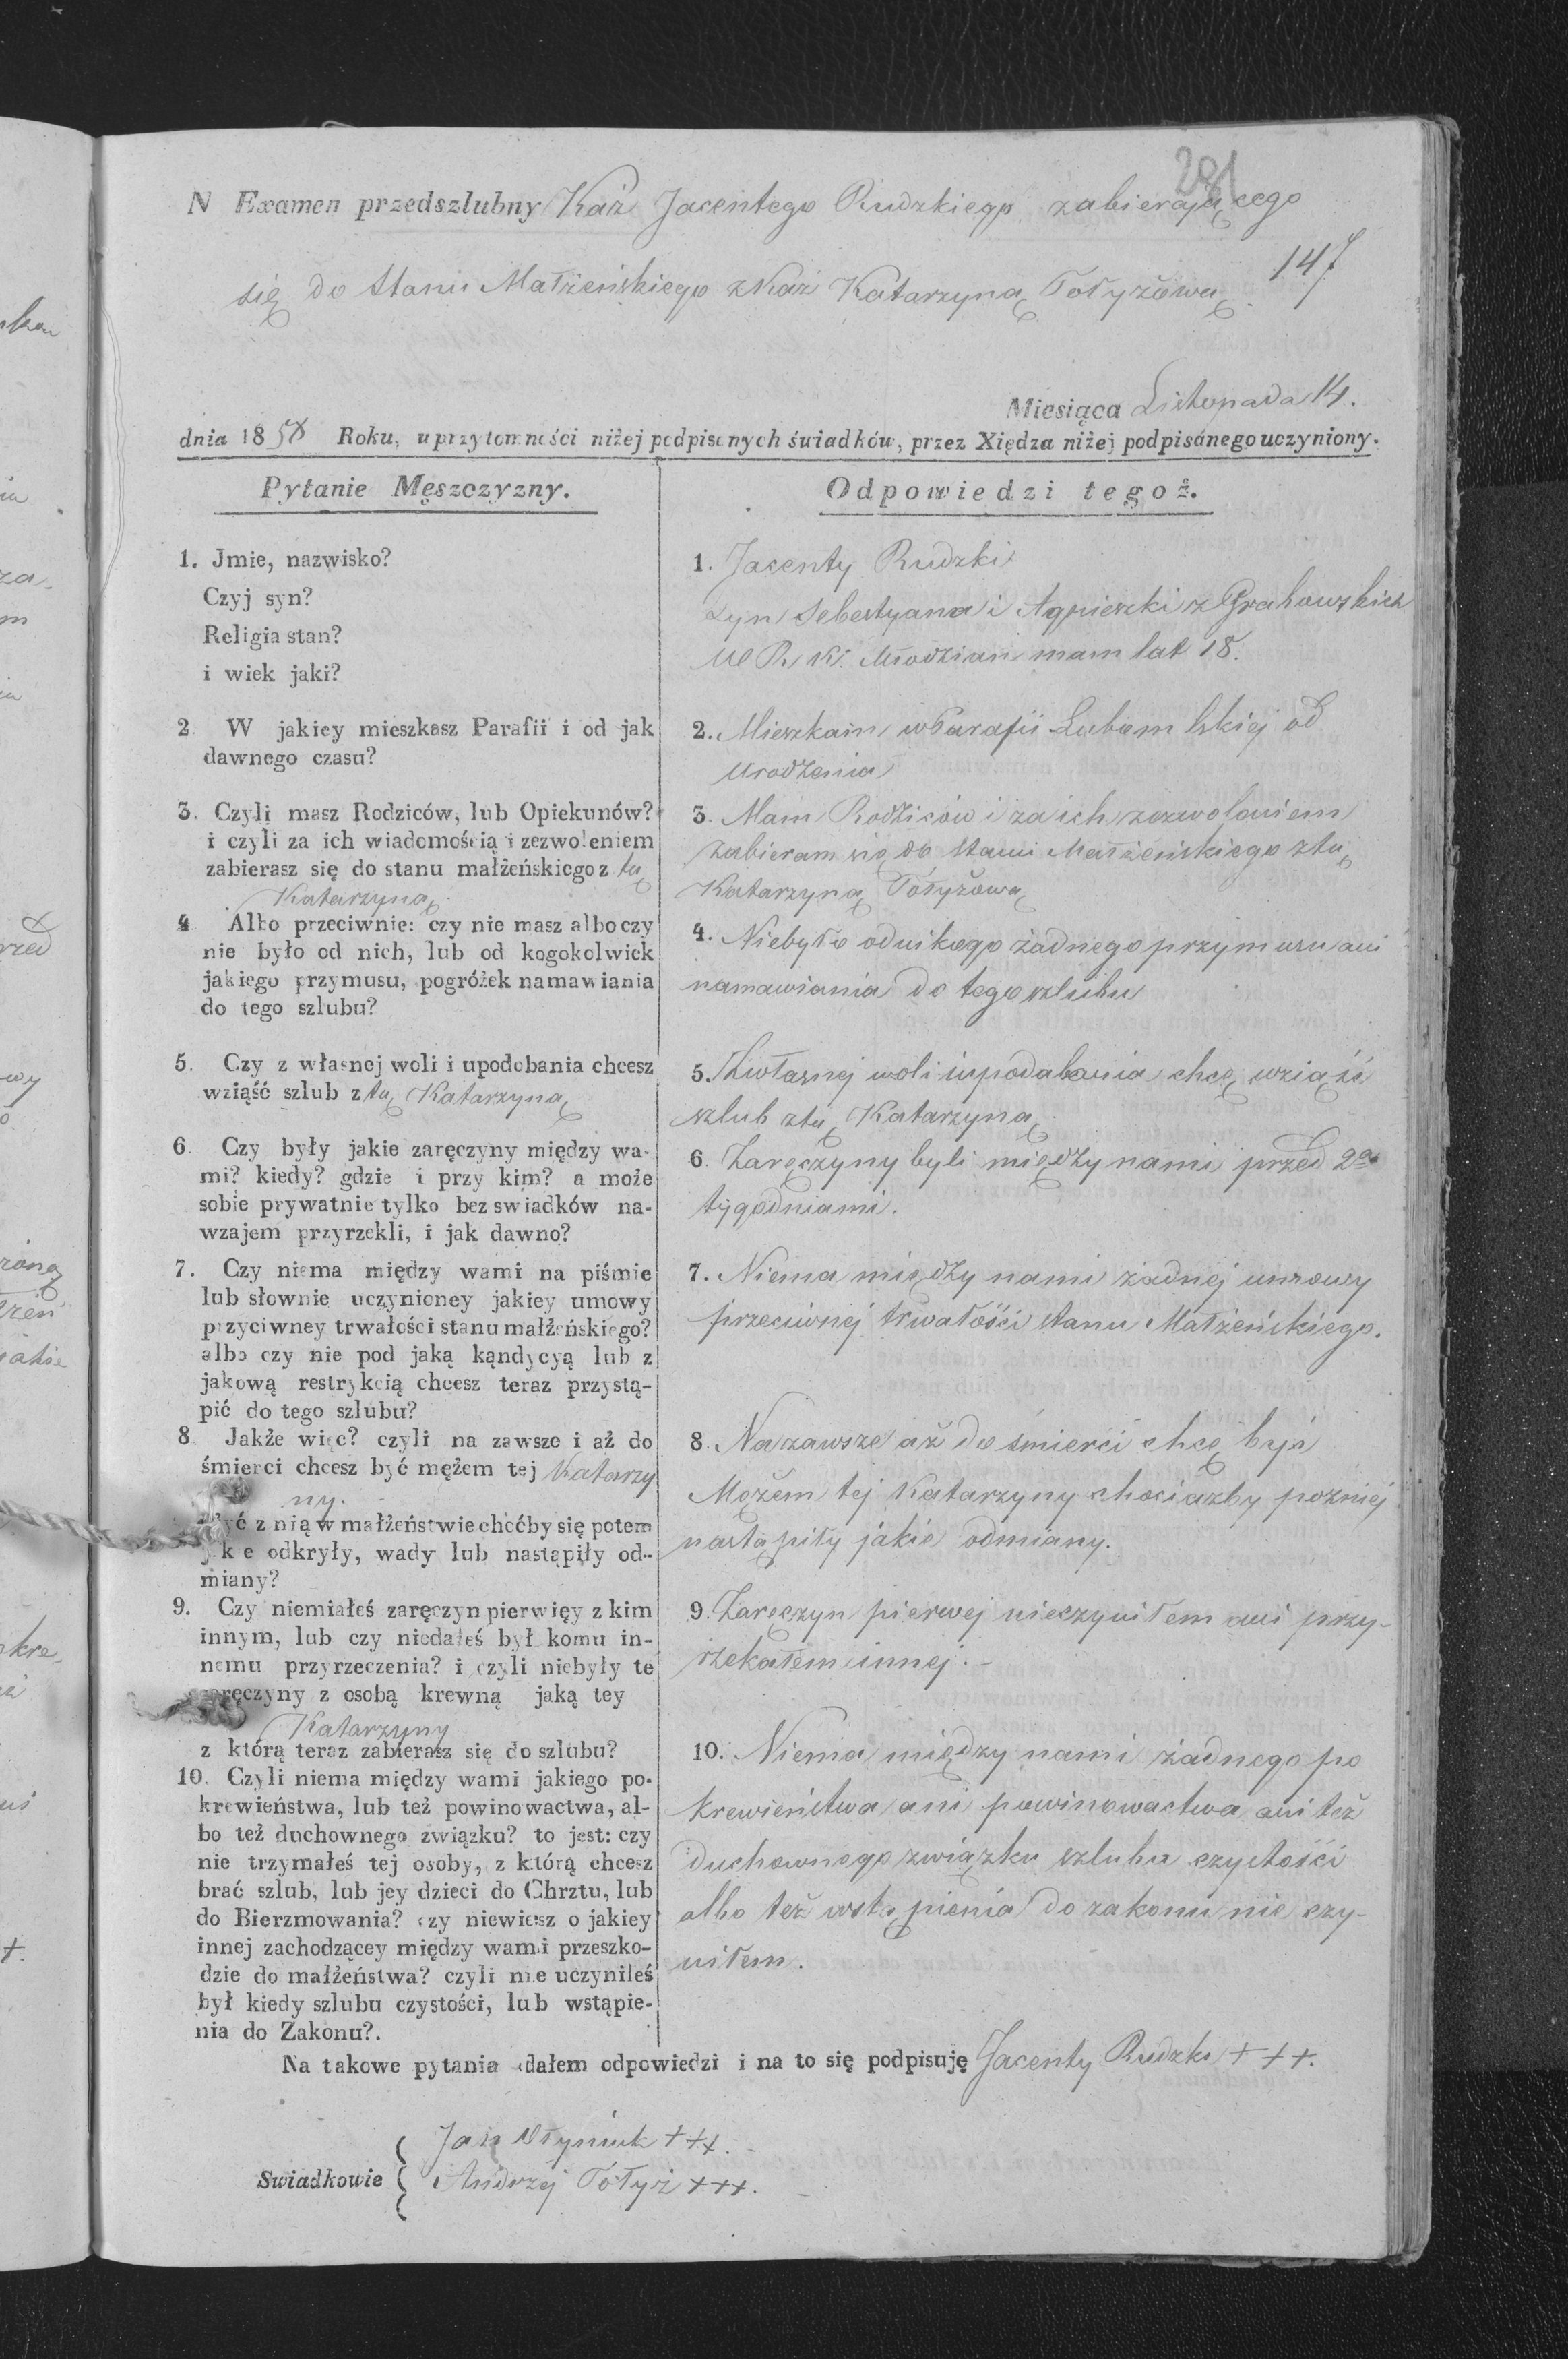 201
N Examen przedszlubny Kaź Jacentego Rudzkiego zabierającego
147
się do Stanu Małżeńskiego z Kaź Katarzyną Tołyżową.
Miesiąca Listopada 14.
dnia 1858 Roku, w przytomności niżej podpisanych świadków, przez Xiędza niżej podpisánego uczyniony.
Pytanie Męszczyzny.
1. Jmie, nazwisko?
Czyj syn?
Religia stan?
i wiek jaki?
2. W jakiey mieszkasz Parafii i od jak
dawnego czasu?
3. Czyli masz Rodziców, lub Opiekunów?
i czyli za ich wiadomością i zezwoleniem
zabierasz się do stanu małżeńskiego z tą
Katarzyną.
4 Albo przeciwnie: czy nie masz albo czy
nie było od nich, lub od kogokolwiek
jakiego przymusu, pogróżek namawiania
do tego szlubu?
5. Czy z własnej woli i upodobania chcesz
wziąść szlub z tą Katarzyną
6 Czy były jakie zaręczyny między wa-
mi? kiedy? gdzie i przy kim? a może
sobie prywatnie tylko bez swiadków na-
wzajem przyrzekli, i jak dawno?
7. Czy niema między wami na piśmie
lub słownie uczynioney jakiey umowy
przyciwney trwałości stanu małżeńskiego?
albo czy nie pod jaką kąndycyą lub z
jakową restrykcią chcesz teraz przystą-
pić do tego szlubu?
8 Jakże więc? czyli na zawsze i aż do
śmierci chcesz być mężem tej Katarzy
ny.
być z nią w małżeństwie choćby się potem
jakie odkryły, wady lub nastąpiły od-
miany?
9. Czy niemiałeś zaręczyn pierwięy z kim
innym, lub czy niedałeś był komu in-
nemu przyrzeczenia? i czyli niebyły te
zaręczyny z osobą krewną jaką tey
Katarzyny
z którą teraz zabierasz się do szlubu?
10. Czyli niema między wami jakiego po-
krewieństwa, lub też powinowactwa, al-
bo też duchownego związku? to jest: czy
nie trzymałeś tej osoby, z którą chcesz
brać szlub, lub jey dzieci do Chrztu, lub
do Bierzmowania? czy niewiesz o jakiey
innej zachodzącey między wami przeszko-
dzie do małżeństwa? czyli nie uczyniłeś
był kiedy szlubu czystości, lub wstąpie-
nia do Zakonu?.
Odpowiedzi tegoż.
1. Jacenty Rudzki
Syn Sebestyana i Agnieszki z Grabowskich
W. R. K. Młodzian mam lat 18.
2. Mieszkam w Parafii Lubomlskiej od
urodzenia
3. Mam Rodziców i za ich zezwoleniem
zabieram się do Stanu Małżeńskiego z tą
Katarzyną Tołyżową
4. Niebyło od nikogo żadnego przymusu ani
namawiania do tego szlubu
5. Z własnej woli i upodabania chcę wziąść
szlub z tą Katarzyną.
6. Zaręczyny byli między nami przed 2ma
tygodniami.
7. Niema między nami żadnej umowy
przeciwnej trwałości stanu Małżeńskiego.
8. Na zawsze aż do śmierci chcę być
Mężem tej Katarzyny chociażby poźniej
nastąpiły jakie odmiany.
9. Zaręczyn pierwej nieczyniłem ani przy-
rzekałem innej. –
10. Niema między nami żadnego po
krewieństwa ani powinowactwa ani też
duchownego związku szlubu czystości
albo też wstąpienia do zakonu nie czy-
niłem.
Na takowe pytania dałem odpowiedzi i na to się podpisuję Jacenty Rudzki +++.
Swiadkowie
Jan +++. –
Andrzej Tołyż +++. –